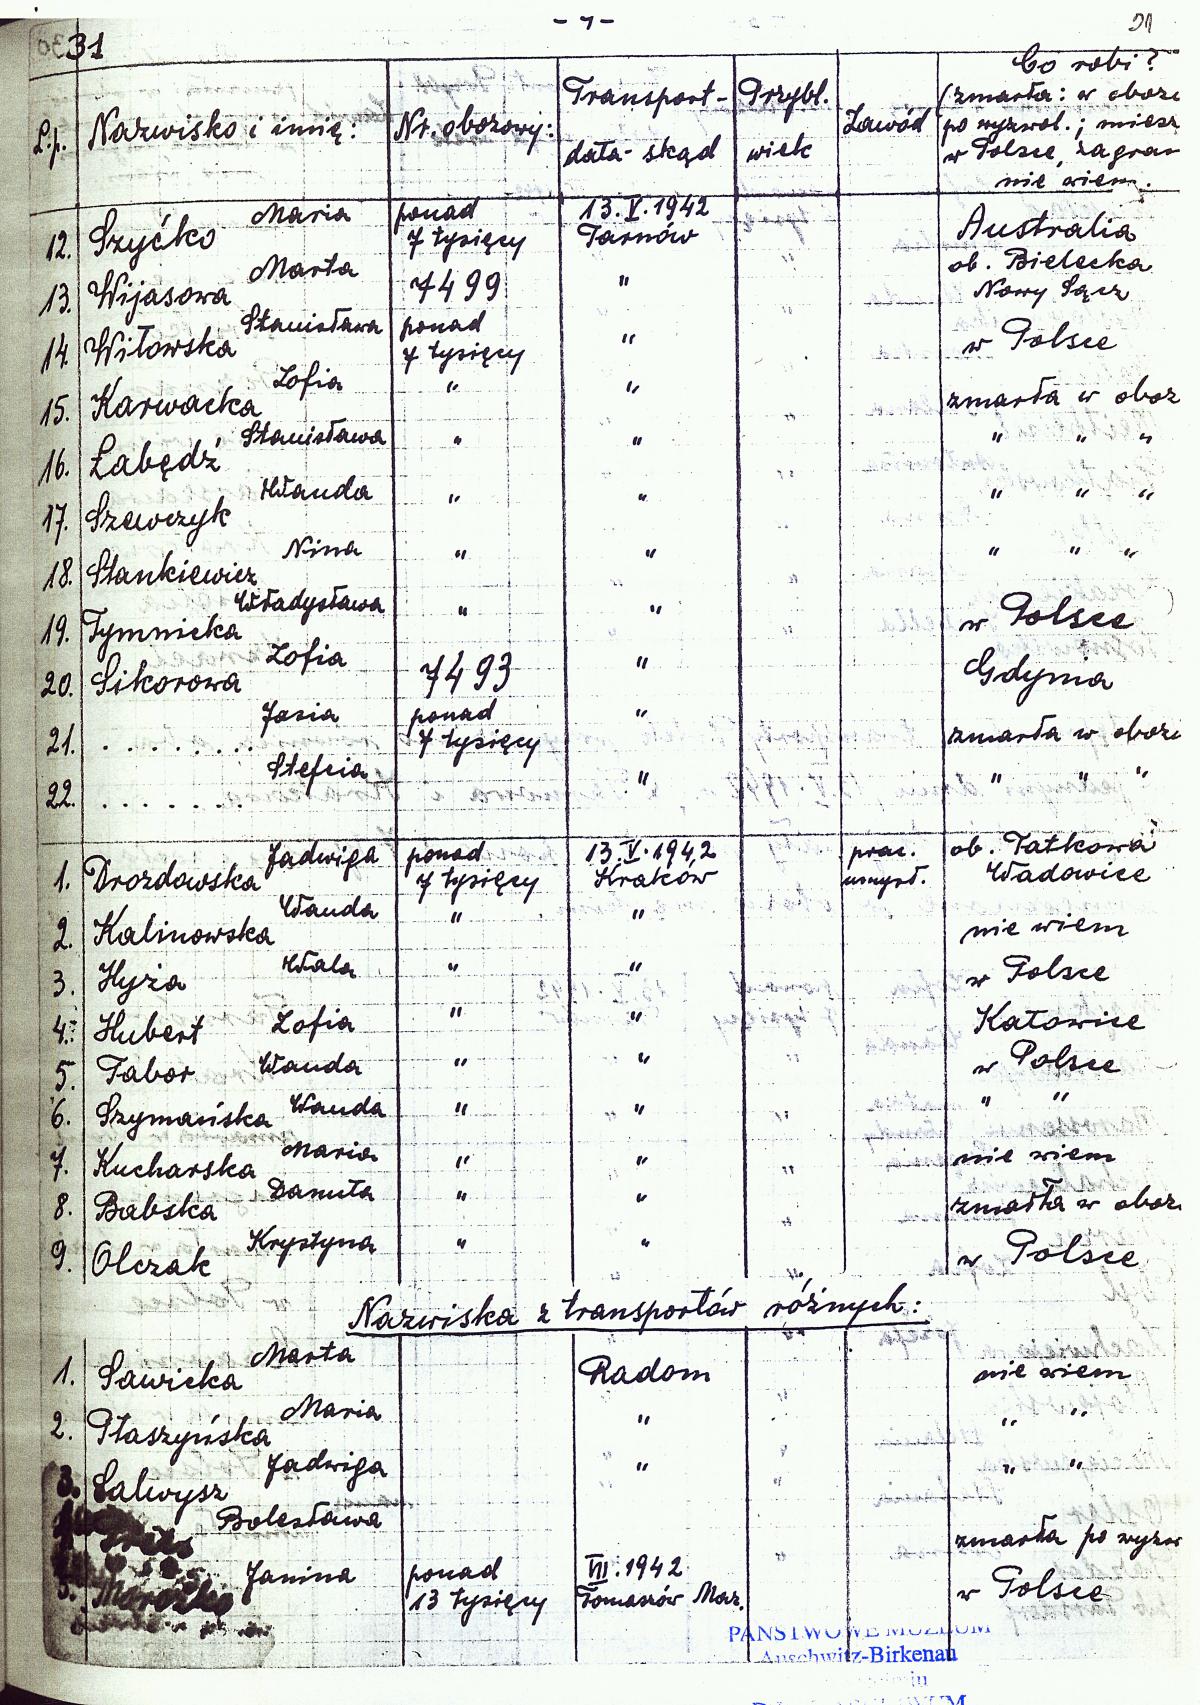 - 7 -
31
L.p. Nazwisko i imię: Nr. obozowy: Transport - data - skąd Przybl. wiek Zawód Co robi? (zmarła: w oboz
po wyzwol.; miesz
w Polsce, zagran
nie wiem.
12. Szyćko Maria ponad 7 tysięcy 13.V.1942 Tarnów Australia
13. Wijasowa Marta 7499 " ob. Bielecka Nowy Sącz
14. Witowska Stanisława ponad 7 tysięcy " w Polsce
15. Karwacka Zofia " " zmarła w oboz
16. Łabędź Stanisława " " " " "
17. Szewczyk Wanda " " " " "
18. Stankiewicz Nina " " " " "
19. Tymnicka Władysława " " w Polsce
20. Sikorowa Zofia 7493 " Gdynia
21. . . . . . . . . Jasia ponad 7 tysięcy " zmarła w oboz
22. . . . . . . . Stefcia " " " "
1. Drozdowska Jadwiga ponad 7 tysięcy 13.V.1942 Kraków prac. umysł. ob. Tatkowa Wadowice
2. Kalinowska Wanda " " nie wiem
3. Hyża Wala " " w Polsce
4. Hubert Zofia " " Katowice
5. Tabor Wanda " " w Polsce
6. Szymańska Wanda " " " "
7. Kucharska Maria " " nie wiem
8. Babska Danuta " " zmarła w oboz
9. Olczak Krystyna " " w Polsce
Nazwiska z transportów różnych:
1. Sawicka Marta Radom nie wiem
2. Płaszyńska Maria " " "
3. Salwysz Jadwiga " " "
Bolesława zmarła po wyzw
5. Morozko Janina ponad 13 tysięcy VII.1942 Tomaszów Maz. w Polsce
PAŃSTWOWE MUZEUM
Auschwitz-Birkenau